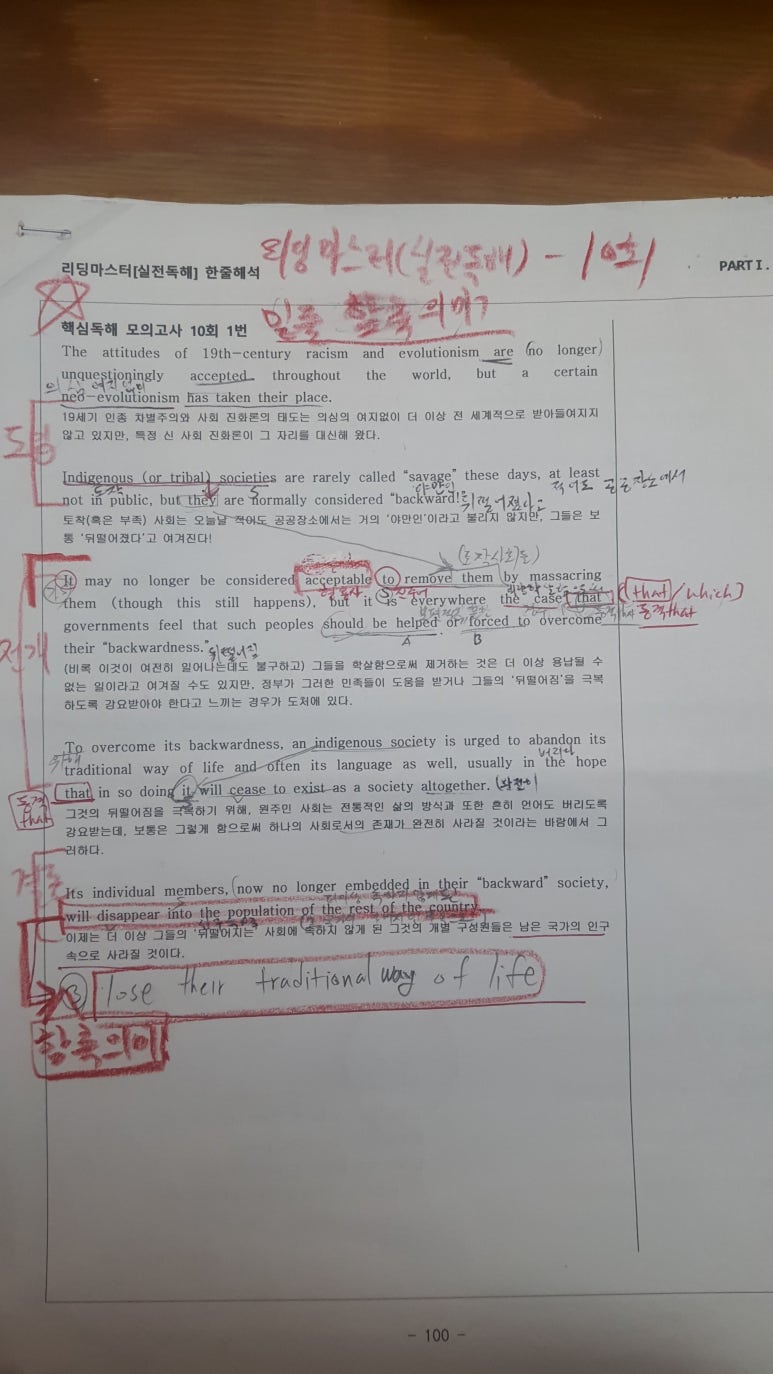 리딩마스터(실전독해) - 10회
리딩마스터[실전독해] 한줄해석
PART I.
핵심독해 모의고사 10회 1번
함축의미
The attitudes of 19th-century racism and evolutionism are (no longer)
unquestioningly accepted throughout the world, but a certain
의심 여지없이
neo-evolutionism has taken their place.
19세기 인종 차별주의와 사회 진화론의 태도는 의심의 여지없이 더 이상 전 세계적으로 받아들여지지
않고 있지만, 특정 신 사회 진화론이 그 자리를 대신해 왔다.
도입
Indigenous (or tribal) societies are rarely called “savage” these days, at least
토착 S 야만인 적어도 공공장소에서
not in public, but they are normally considered “backward!”
뒤떨어졌다는
토착(혹은 부족) 사회는 오늘날 적어도 공공장소에서는 거의 '야만인'이라고 불리지 않지만, 그들은 보
통 '뒤떨어졌다'고 여겨진다!
(토착사회들)
It may no longer be considered acceptable to remove them by massacring
형용사
them (though this still happens), but it is everywhere the case that
(that/which)
동격that
governments feel that such peoples should be helped or forced to overcome
A B
their “backwardness.”
뒤떨어짐
전개
(비록 이것이 여전히 일어나는데도 불구하고) 그들을 학살함으로써 제거하는 것은 더 이상 용납될 수
없는 일이라고 여겨질 수도 있지만, 정부가 그러한 민족들이 도움을 받거나 그들의 '뒤떨어짐'을 극복
하도록 강요받아야 한다고 느끼는 경우가 도처에 있다.
To overcome its backwardness, an indigenous society is urged to abandon its
위해 버리다
traditional way of life and often its language as well, usually in the hope
that in so doing it will cease to exist as a society altogether. (완전히)
동격
that
그것의 뒤떨어짐을 극복하기 위해, 원주민 사회는 전통적인 삶의 방식과 또한 흔히 언어도 버리도록
강요받는데, 보통은 그렇게 함으로써 하나의 사회로서의 존재가 완전히 사라질 것이라는 바람에서 그
러하다.
결론
Its individual members, (now no longer embedded in their “backward” society,
will disappear into the population of the rest of the country.
이제는 더 이상 그들의 '뒤떨어지는' 사회에 속하지 않게 된 그것의 개별 구성원들은 남은 국가의 인구
속으로 사라질 것이다.
③ lose their traditional way of life
함축의미
- 100 -